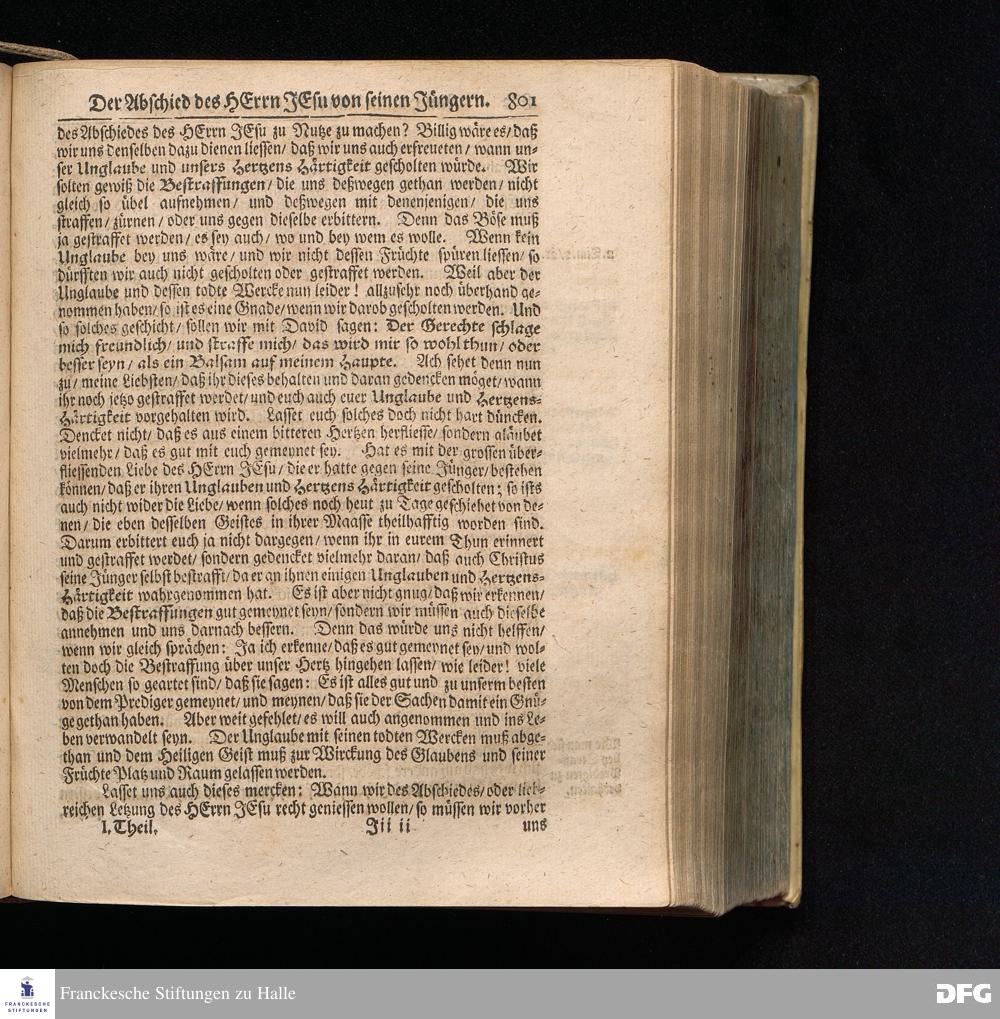 Der Abschied des HErrn JEsu von seinen Jüngern. 801
des Abschiedes des HErrn JEsu zu Nutze zu machen? Billig wäre es/ daß
wir uns denselben dazu dienen liessen/ daß wir uns auch erfreueten/ wann un-
ser Unglaube und unsers Hertzens Härtigkeit gescholten würde. Wir
solten gewiß die Bestraffungen/ die uns deßwegen gethan werden/ nicht
gleich so übel aufnehmen/ und deßwegen mit denenjenigen/ die uns
straffen/ zürnen/ oder uns gegen dieselbe erbittern. Denn das Böse muß
ja gestraffet werden/ es sey auch/ wo und bey wem es wolle. Wenn kein
Unglaube bey uns wäre/ und wir nicht dessen Früchte spüren liessen/ so
dürfften wir auch nicht gescholten oder gestraffet werden. Weil aber der
Unglaube und dessen todte Wercke nun leider! allzusehr noch überhand ge-
nommen haben/ so ist es eine Gnade/ wenn wir darob gescholten werden. Und
so solches geschicht/ sollen wir mit David sagen: Der Gerechte schlage
mich freundlich/ und straffe mich/ das wird mir so wohl thun/ oder
besser seyn/ als ein Balsam auf meinem Haupte. Ach sehet denn nun
zu/ meine Liebsten/ daß ihr dieses behalten und daran gedencken möget/ wann
ihr noch jetzo gestraffet werdet/ und euch auch euer Unglaube und Hertzens-
Härtigkeit vorgehalten wird. Lasset euch solches doch nicht hart düncken.
Dencket nicht/ daß es aus einem bitteren Hertzen herfliesse/ sondern gläubet
vielmehr/ daß es gut mit euch gemeynet sey. Hat es mit der grossen über-
fliessenden Liebe des HErrn JEsu/ die er hatte gegen seine Jünger/ bestehen
können/ daß er ihren Unglauben und Hertzens Härtigkeit gescholten; so ists
auch nicht wider die Liebe/ wenn solches noch heut zu Tage geschiehet von de-
nen/ die eben desselben Geistes in ihrer Maasse theilhafftig worden sind.
Darum erbittert euch ja nicht dargegen/ wenn ihr in eurem Thun erinnert
und gestraffet werdet/ sondern gedencket vielmehr daran/ daß auch Christus
seine Jünger selbst bestrafft/ da er an ihnen einigen Unglauben und Hertzens-
Härtigkeit wahrgenommen hat. Es ist aber nicht gnug/ daß wir erkennen/
daß die Bestraffungen gut gemeynet seyn/ sondern wir müssen auch dieselbe
annehmen und uns darnach bessern. Denn das würde uns nicht helffen/
wenn wir gleich sprächen: Ja ich erkenne/ daß es gut gemeynet sey/ und wol-
ten doch die Bestraffung über unser Hertz hingehen lassen/ wie leider! viele
Menschen so geartet sind/ daß sie sagen: Es ist alles gut und zu unserm besten
von dem Prediger gemeynet/ und meynen/ daß sie der Sachen damit ein Gnü-
ge gethan haben. Aber weit gefehlet/ es will auch angenommen und ins Le-
ben verwandelt seyn. Der Unglaube mit seinen todten Wercken muß abge-
than und dem Heiligen Geist muß zur Wirckung des Glaubens und seiner
Früchte Platz und Raum gelassen werden.
Lasset uns auch dieses mercken: Wann wir des Abschiedes/ oder lieb-
reichen Letzung des HErrn JEsu recht geniessen wollen/ so müssen wir vorher
I. Theil. Jii ii uns
FRANCKESCHE
STIFTUNGEN
Franckesche Stiftungen zu Halle
DFG